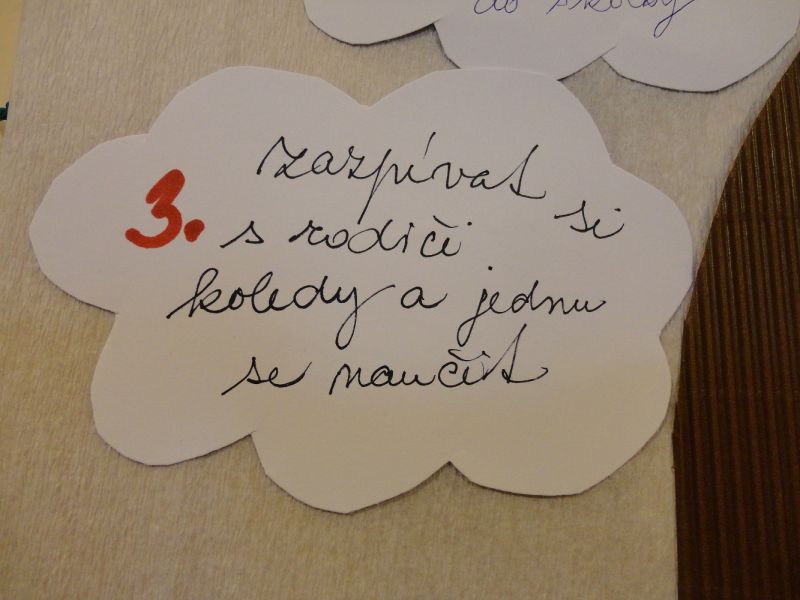 do školky
3. zazpívat si
s rodiči
koledy a jednu
se naučit